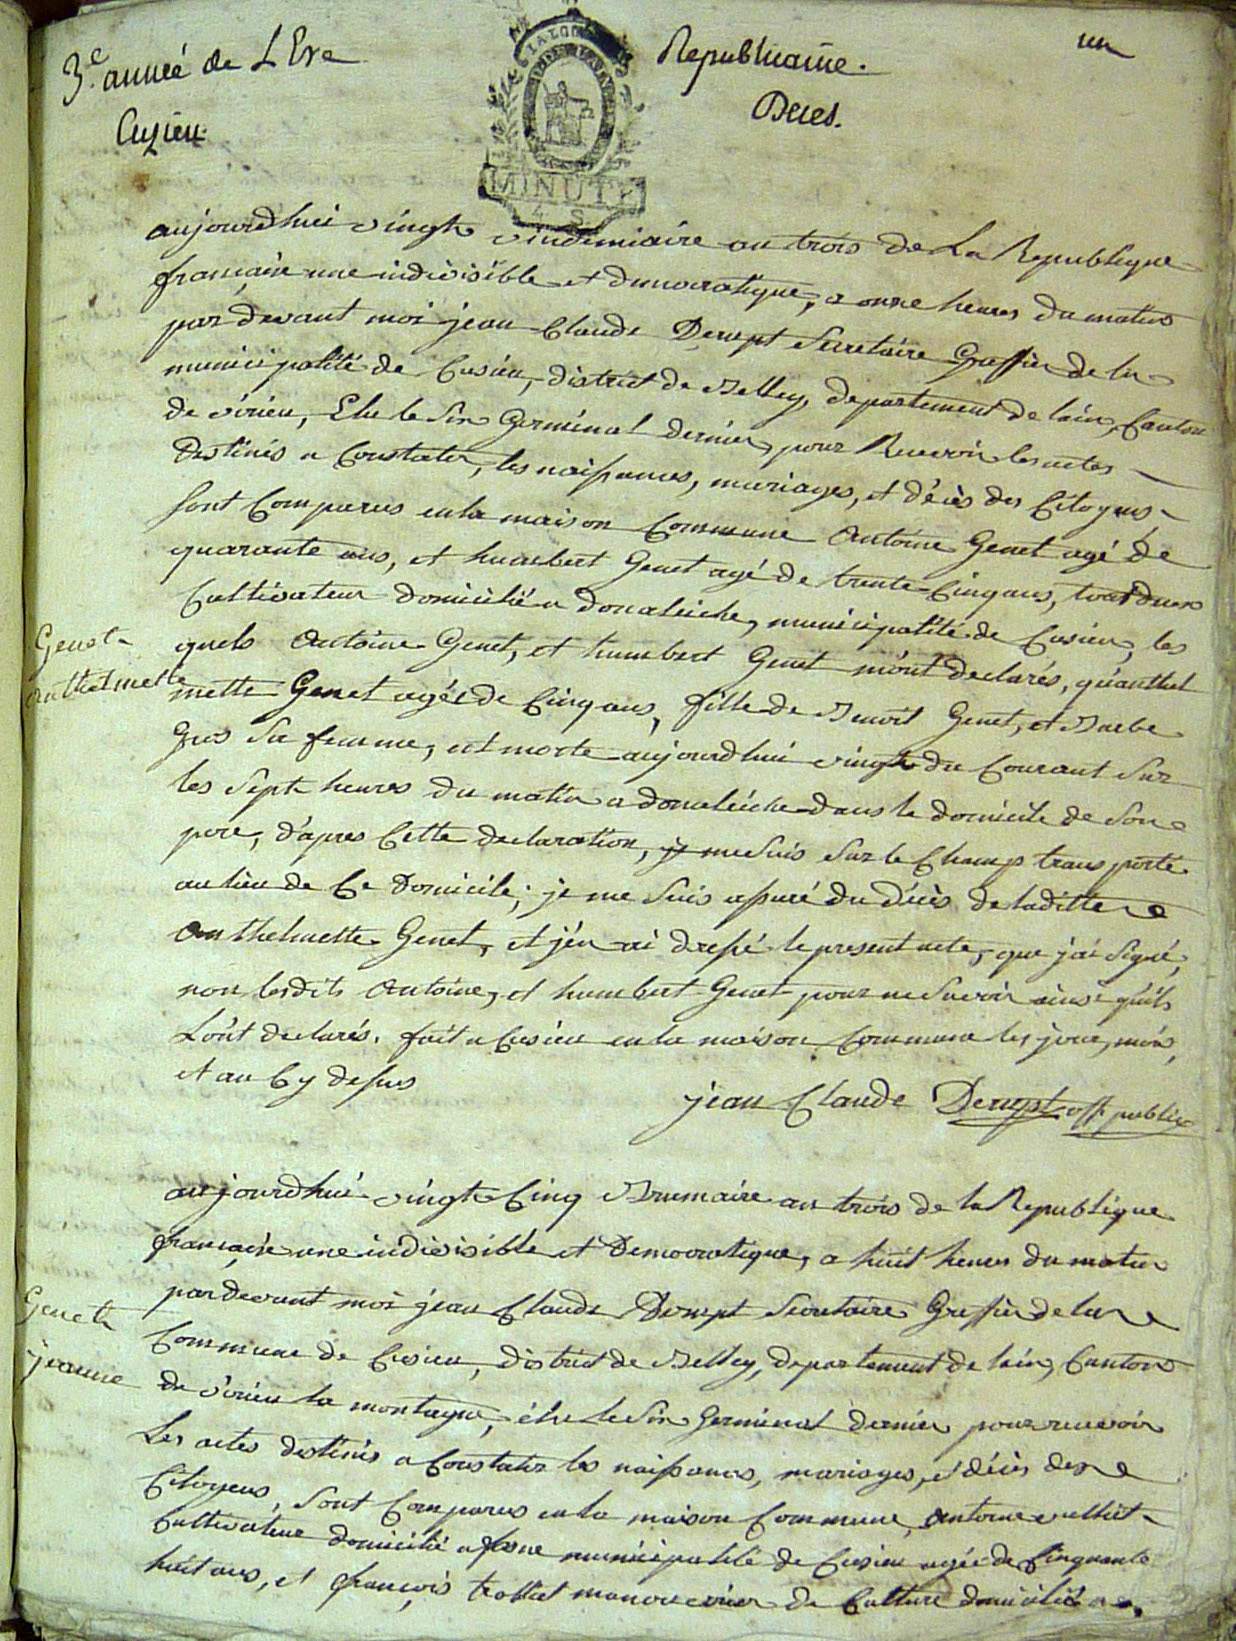 3.e année de L Ere
Republicaine.
un
Cuzieu
Deces.
LA LOI
MINUTE
4 S
aujourdhui vingt vindemiaire an trois de La Republique
française une indivisible et democratique, a onze heures du matin
par devant moi jean Claude Derupt Secretaire Greffier de la
municipalité de Cusieu, district de Belley, departement de lain, Canton
de virieu, Elu le Six Germinal dernier pour Recevoir les actes
destinés a Constater, les naissances, mariages, et décès des Citoyens
sont Comparus en la maison Commune Antoine Genet agé de
quarante ans, et humbert Genet agé de trente Cinq ans, tout deux
Cultivateur domicilié a donaleiche, municipalité de Cusieu, les
quels Antoine Genet, et humbert Genet m'ont declarés, qu'anthel
Genet
Anthelmette
mette Genet agée de Cinq ans, fille de Benoit Genet, et Barbe
Gros Sa femme, est morte aujourdhui vingt du Courant Sur
les Sept heures du matin a donaleiche dans le domicile de Son
pere, d'apres Cette declaration, je me Suis Sur le Champ transporté
au lieu de Ce Domicile; je me Suis assuré du décès de laditte
Anthelmette Genet, et j'en ai dressé le present acte, que j'ai Signé,
non lesdits Antoine, et humbert Genet pour ne Savoir ainsi qu'ils
L'ont declarés. fait a Cusieu en la maison Commune les jour, mois,
et an Cy dessus
jean Claude Derupt off. public
aujourdhui vingt Cinq Brumaire an trois de la Republique
française une indivisible et Democratique, a huit heures du matin
par devant moi jean Claude Derupt Secretaire Greffier de la
Genet
jeanne
Commune de Cusieu, district de Belley, departement de lain, Canton
de virieu la montagne, élu le Six Germinal dernier pour recevoir
Les actes destinés a Constater les naissances, mariages, et décès des
Citoyens, Sont Comparus en la maison Commune, Antoine
Cultivateur domicilié a municipalité de Cusieu agée de Cinquante
huit ans, et françois manouvrier de Culture domicilié a